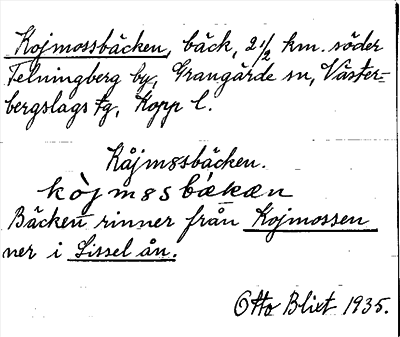 Kojmossbäcken, bäck, 2 1/2 km. söder
Felningberg by, Grangärde sn, Väster-
bergslags tg, Kopp l.
Kåjmossbäcken.
kòjmɷsbækæn
Bäcken rinner från Kojmossen
ner i Lissel ån.
Otto Blixt 1935.